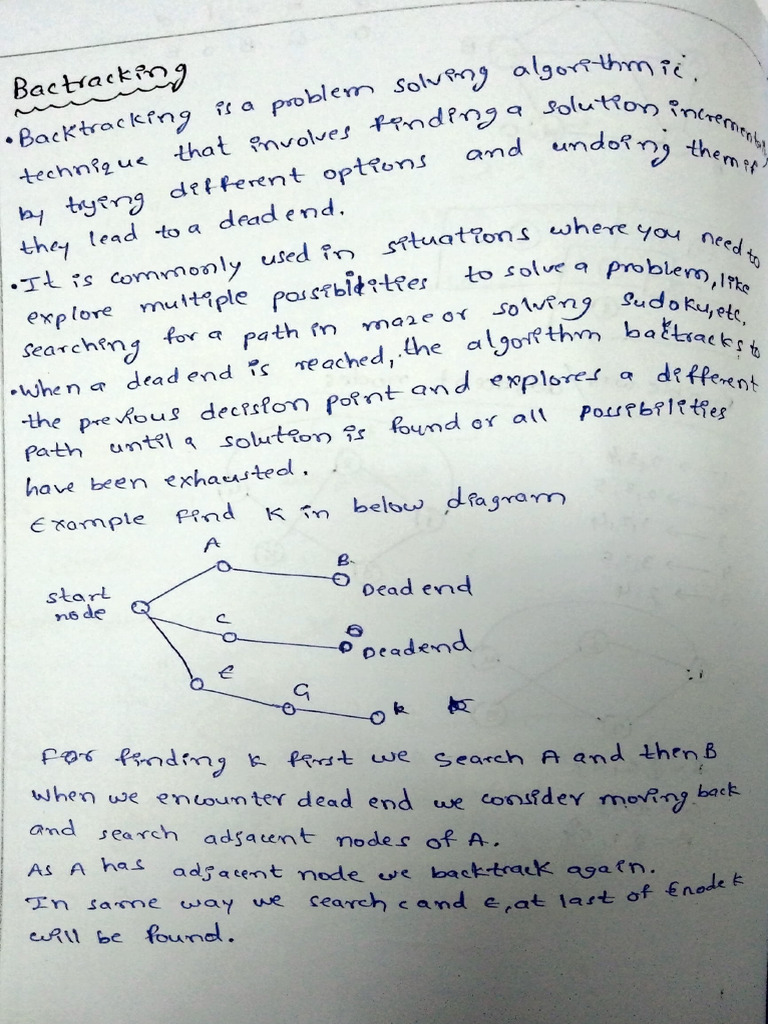 Bactracking
• Backtracking is a problem solving algorithmic.
technique that involves finding a solution incrementally
by trying different options and undoing them if
they lead to a dead end.
• It is commonly used in situations where you need to
explore multiple possibilities to solve a problem, like
searching for a path in maze or solving Sudoku, etc.
• When a dead end is reached, the algorithm backtracks to
the previous decision point and explores a different
path until a solution is found or all possibilities
have been exhausted.
Example Find K in below diagram
A
B
Dead end
start
node
C
Deadend
E
G
k
For finding k first we search A and then B
when we encounter dead end we consider moving back
and search adjacent nodes of A.
As A has adjacent node we backtrack again.
In same way we search c and E, at last of E node k
will be found.